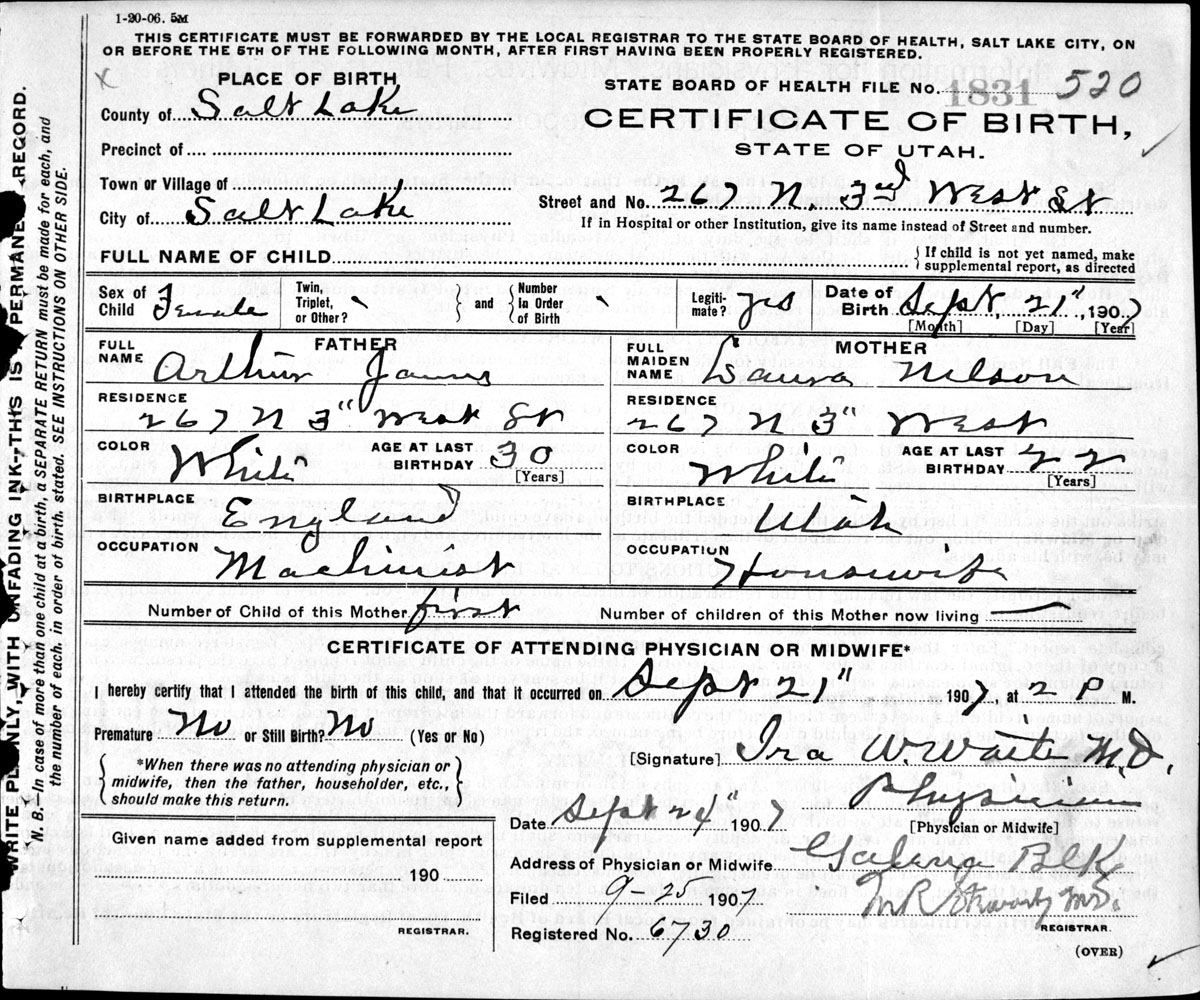 1-20-06. 5M
THIS CERTIFICATE MUST BE FORWARDED BY THE LOCAL REGISTRAR TO THE STATE BOARD OF HEALTH, SALT LAKE CITY, ON
OR BEFORE THE 5TH OF THE FOLLOWING MONTH, AFTER FIRST HAVING BEEN PROPERLY REGISTERED.
PLACE OF BIRTH
STATE BOARD OF HEALTH FILE No. 1831 520
County of Salt Lake
CERTIFICATE OF BIRTH,
Precinct of
STATE OF UTAH.
Town or Village of
Street and No. 267 N. 3rd West St
City of Salt Lake
If in Hospital or other Institution, give its name instead of Street and number.
FULL NAME OF CHILD
If child is not yet named, make
supplemental report, as directed
Sex of Child Female
Twin, Triplet, or Other?
and
Number In Order of Birth
Legiti-mate? yes
Date of Birth Sept. 21", 1907
[Month] [Day] [Year]
FATHER
FULL NAME Arthur
RESIDENCE
267 N 3" West St
COLOR White
AGE AT LAST BIRTHDAY 30
[Years]
BIRTHPLACE England
OCCUPATION Machinist
MOTHER
FULL MAIDEN NAME Laura Nilson
RESIDENCE
267 N 3" West
COLOR White
AGE AT LAST BIRTHDAY 22
[Years]
BIRTHPLACE Utah
OCCUPATION Housewife
Number of Child of this Mother first
Number of children of this Mother now living —
CERTIFICATE OF ATTENDING PHYSICIAN OR MIDWIFE*
I hereby certify that I attended the birth of this child, and that it occurred on Sept 21" 1907 at 2 P M.
Premature No or Still Birth? No (Yes or No)
[Signature] Ira W. Waite M.D.
Physician
[Physician or Midwife]
*When there was no attending physician or
midwife, then the father, householder, etc.,
should make this return.
Date Sept 24" 1907
Given name added from supplemental report
190
REGISTRAR.
Address of Physician or Midwife Galena Blk
Filed 9-25 1907
M R Stewart M.D.
REGISTRAR.
Registered No. 6730
(OVER)
WRITE PLAINLY, WITH UNFADING INK—THIS IS PERMANENT RECORD.
N. B.—In case of more than one child at a birth, a SEPARATE RETURN must be made for each, and
the number of each, in order of birth, stated. SEE INSTRUCTIONS ON OTHER SIDE.